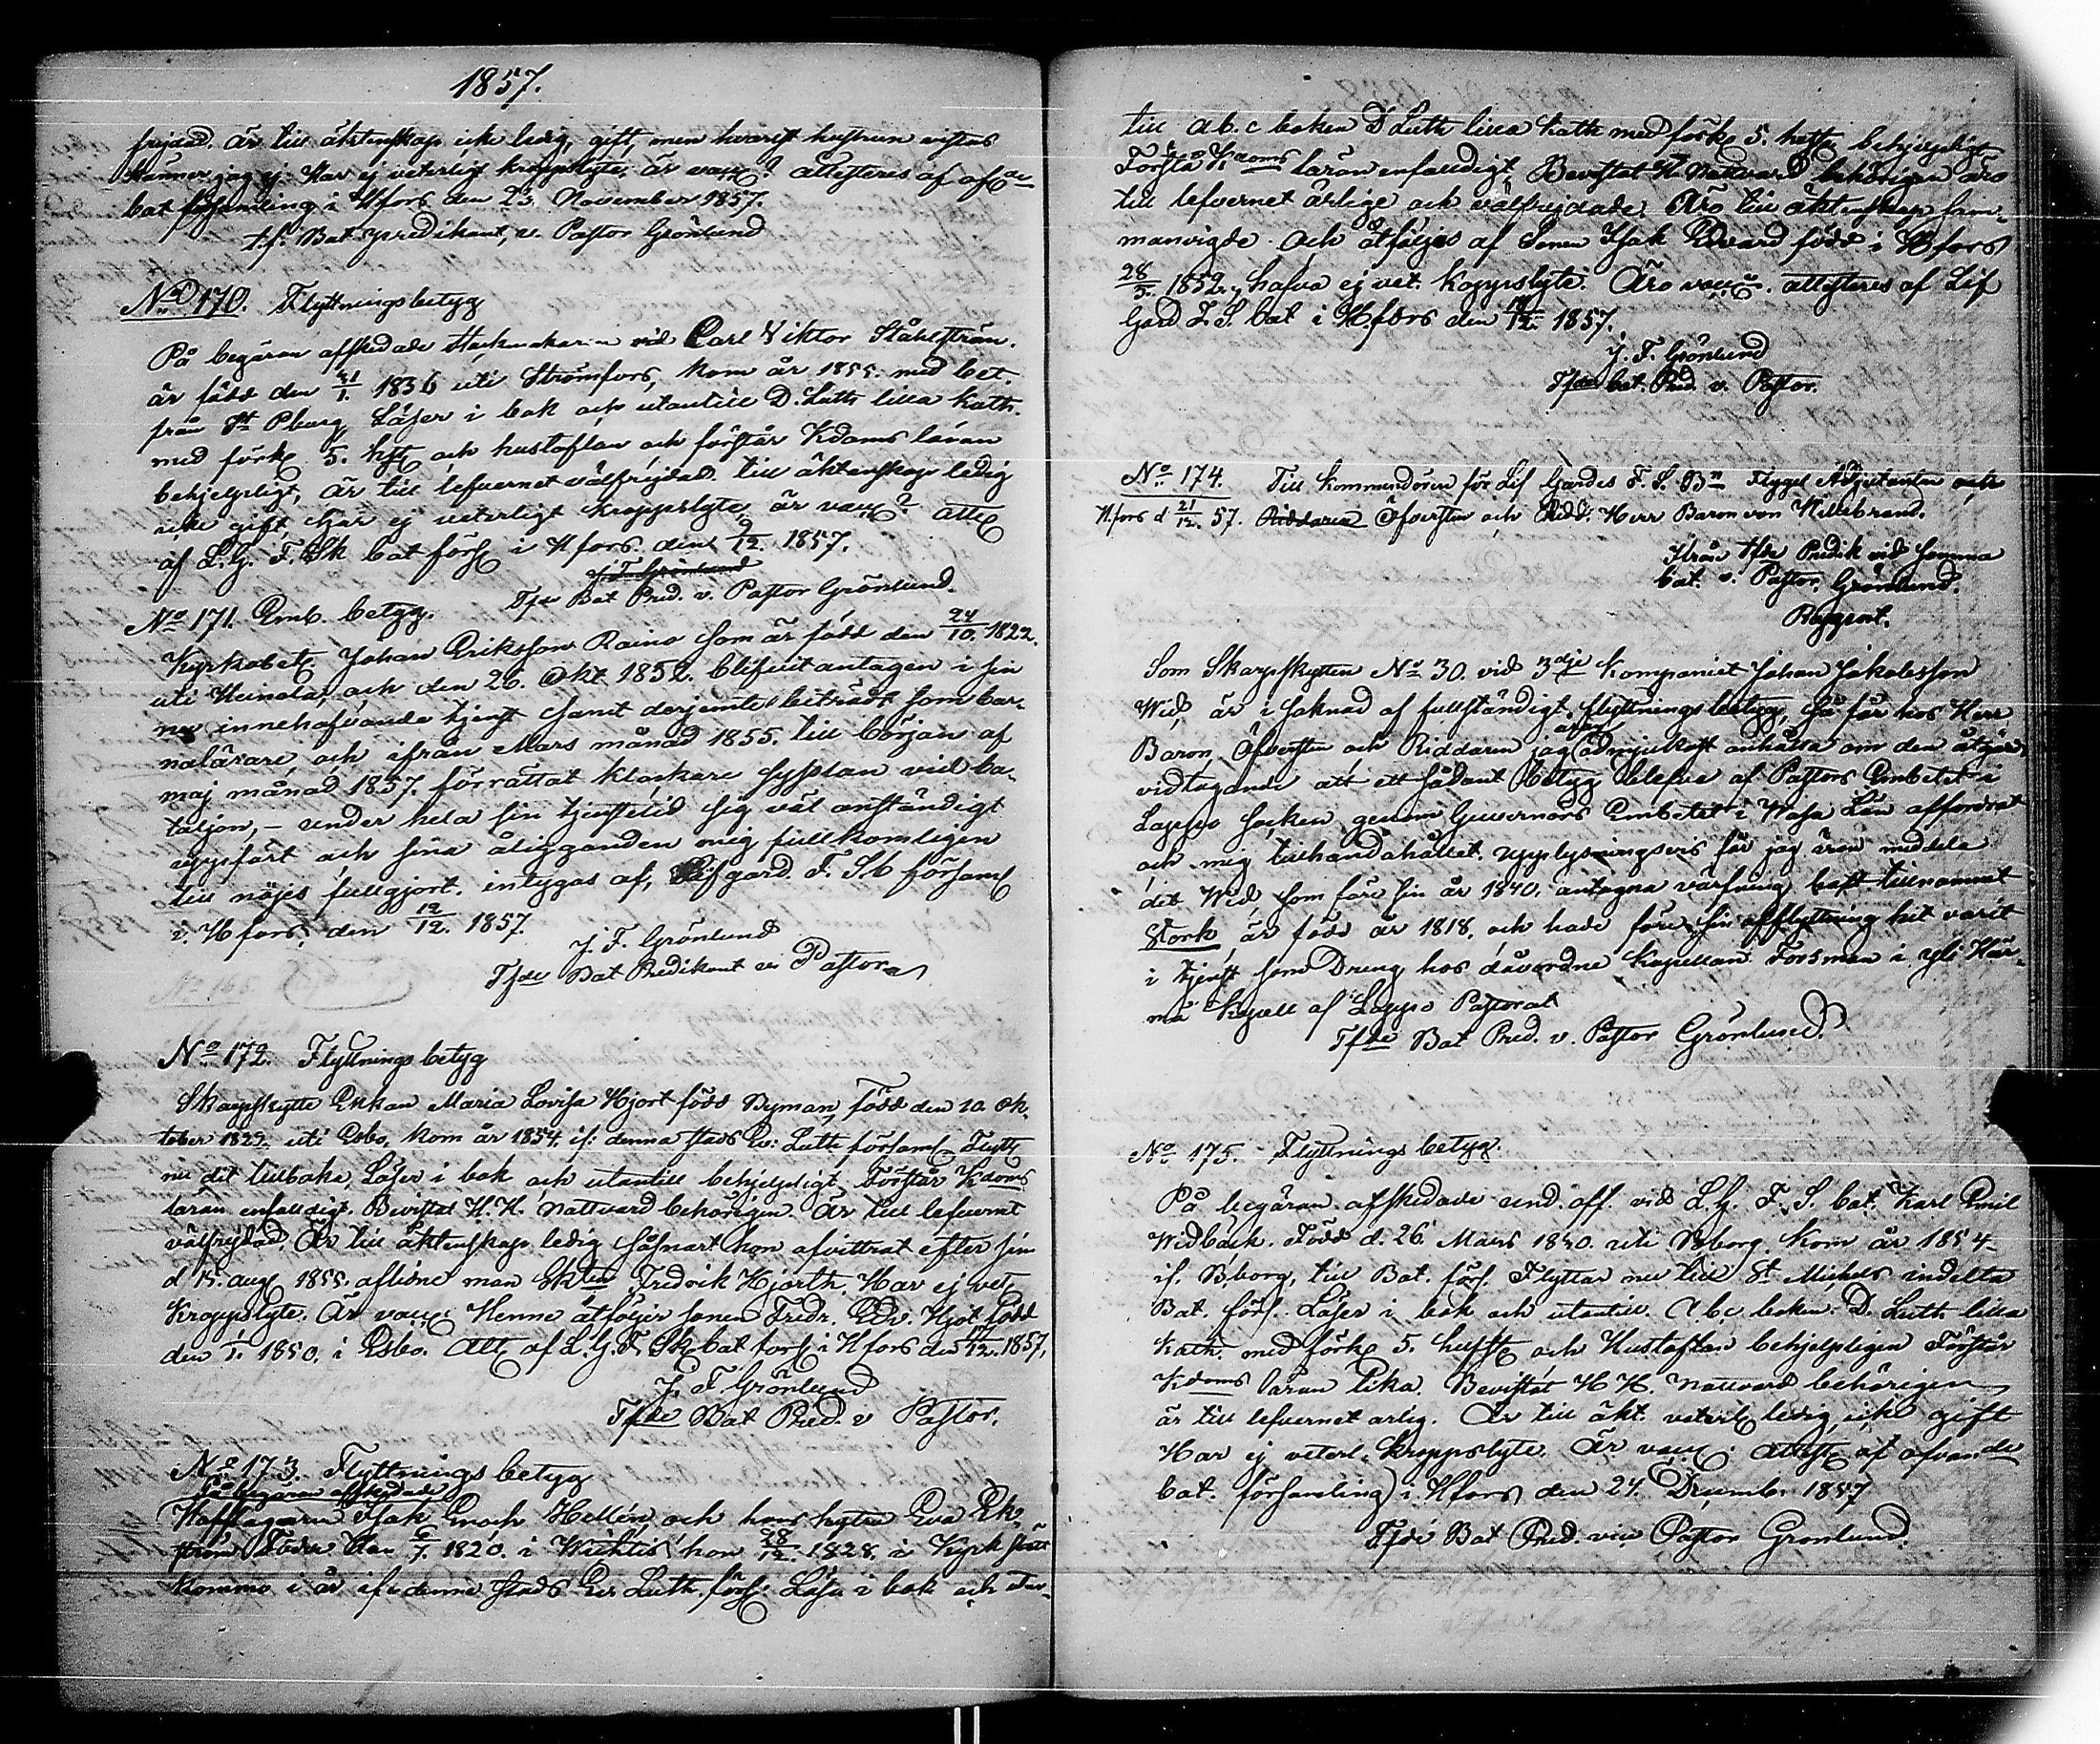 1857.
frejdad. är till äktenskap icke ledig, gift, men hvarest hustrun vistas
känner jag ej. Har ej veterligt kroppslyte, är vacc. attesteras af
bat församling i Hfors den 23. November 1857.
t.f. Bat predikant, v. Pastor Grönlund
No 170. Flyttningsbetyg
På begäran afskedade vid Carl Viktor Stålström.
är född den 31/1. 1836 uti Strömfors, kom år 1855. med bet.
från St Pburg Läser i bok och utantill D. Luth lilla Kath.
med förk 5. hft och hustaflan och förstår Kdoms läran
behjelpligt, är till lefvernet välfrejdad. till äktenskap ledig
icke gift, har ej veterligt kroppslyte, är vacc. Atte
af L.G. F. Sk bat förs i Hfors. den 9/12. 1857.
J. F. Grönlund
Tfde Bat Pred. v. Pastor Grönlund.
No 171. Emb. betyg.
Kyrkobetj Johan Eriksson Raino som är född den 24/10. 1822.
uti Heinola, och den 26. Okt 1852. blifvit antagen i sin
nu innehafvande tjenst samt derjemte biträdt som bar-
nalärare, och ifrån Mars månad 1855. till början af
maj månad 1857. förrättat klockare sysslan vid ba-
taljon, – under hela sin tjenstetid sig väl anständigt
uppfört och sina åligganden mig fullkomligen
till nöjes fullgjort. intygas af, Lifgard. F. Sk församl
i. Hfors, den 12/12. 1857.
J. F. Grönlund
Tfde Bat Predikant v. Pastor
No 172. Flyttnings betyg
Skarpskytte Enkan Maria Lovisa Hjort född Byman, född den 10 Ok-
tober 1829. uti Esbo, kom år 1854. if: denna stads Ev: Luth församl Flytt
nu dit tillbaka, Läser i bok och utantill behjelpligt Förstår Kdoms
läran enfaldigt. Bevistat H. H. nattvard behörigen. Är till lefvernet
välfrejdad. Är till äktenskap ledig såsnart hon afvittrat efter sin
d 15. aug 1855. aflidne man Skten Fredrik Hjorth. Har ej vet
Kroppslyte. Är vacc Henne åtföljer sonen Fredr. Edv. Hjot född
den 1/1. 1850. i Esbo. Att af L.G.F. Sk bat fors i Hfors den 14/12. 1857.
J. F Grönlund
Tfde Bat Pred. v Pastor.
No 173. Flyttnings betyg
På begäran afskedade
Isak Enoch Hellén, och hans hustru Eva Ek-
ström Födde Han 6/7. 1820. i Wichtis hon 28/12. 1828. i Kyrkslätt
Komne i år if denne stads Ev Luth. förs. Läsa i bok och
till a b. c boken D Luth lilla Kath med förk 5. hufst behjelpligt
Förstå Kdoms läran enfaldigt. Bevistat H. Nattvard behörigen äro
till lefvernet ärlige och välfrejdade. Äro till äktenskap sam-
manvigde. Och åtföljes af Sonen Isak Edvard född i Hfors
28/5. 1852., hafva ej vet. kroppslyte. Äro vacc. attesteras af Lif
Gard F. S. bat i H.fors den 14/12. 1857.
J. F. Grönlund
Tfde bat. Pred. v. Pastor.
No 174. Till Kommendören för Lif Gardes F. S. Bn Flygel Adjutanten och
H.fors d 21/12. 57. Riddaren Öfversten och Ridd. Herr Baron von Willebrand.
Ifrån tfde Predik vid samma
bat. v. Pastor. Grönlund.
Rapport.
Som Skarpskytten No 30. vid 3dje Kompaniet Johan Jakobsson
Wid, är i saknad af fullständigt flyttningsbetyg, så får hos Herr
Baron, Öfversten och Riddaren jag ödmjukast anhålla om den åtgärd
vidtagande att ett sådant betyg blefve af Pastors Embetet i
Lappo socken genom Guvernörs Embetet i Wasa Län affordrat
och mig tillhandahållet. Upplysningsvis får jag äran meddela
det Wid, som före sin år 1840. antagna värfning haft tillnamnet
Stork är född år 1818, och hade före sin afflyttning hit varit
i tjenst som Dreng hos dåvardne Kapellan Forsman i yli Här-
mä Kapell af Lappo Pastorat
Tfde Bat Pred. v. Pastor Grönlund.
No 175. Flyttnings betyg.
På begäran afskedade und. off. vid L.G. F. S. bat. Karl Emil
Widbäck. Född d. 26 Mars 1830. uti Wborg. Kom år 1854-
if. Wborg, till Bat. förs. Flyttar nu till St Michels indelta
Bat. förs. Läser i bok och utantill. A.b.c boken. D. Luth lilla
Kath. med förk 5. hufst och Hustaflan behjelpligen Förstår
Kdoms läran lika. Bevistat H H. nattvard behörigen
är till lefvernet ärlig. Är till äkt. veterl ledig, icke gift
Har ej veterl. Kroppslyte. Är vacc. attest af ofvan de
bat. församling i Hfors den 24. December 1857
Tfde Bat Pred. vice Pastor Grönlund.